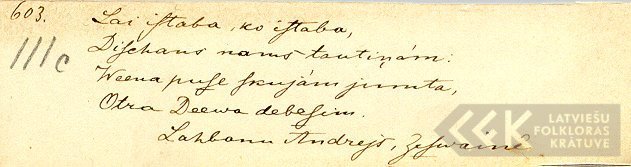 603.
Lai iſtaba, ko iſtaba,
IIIc
Diſchans nams tautiņám:
Weena puſe ſkujám jumta,
Otra Deewa debeſim.
Lahbanu Andrejs, Zeſwainē
LATVIEŠU
FOLKLORAS
KRĀTUVE